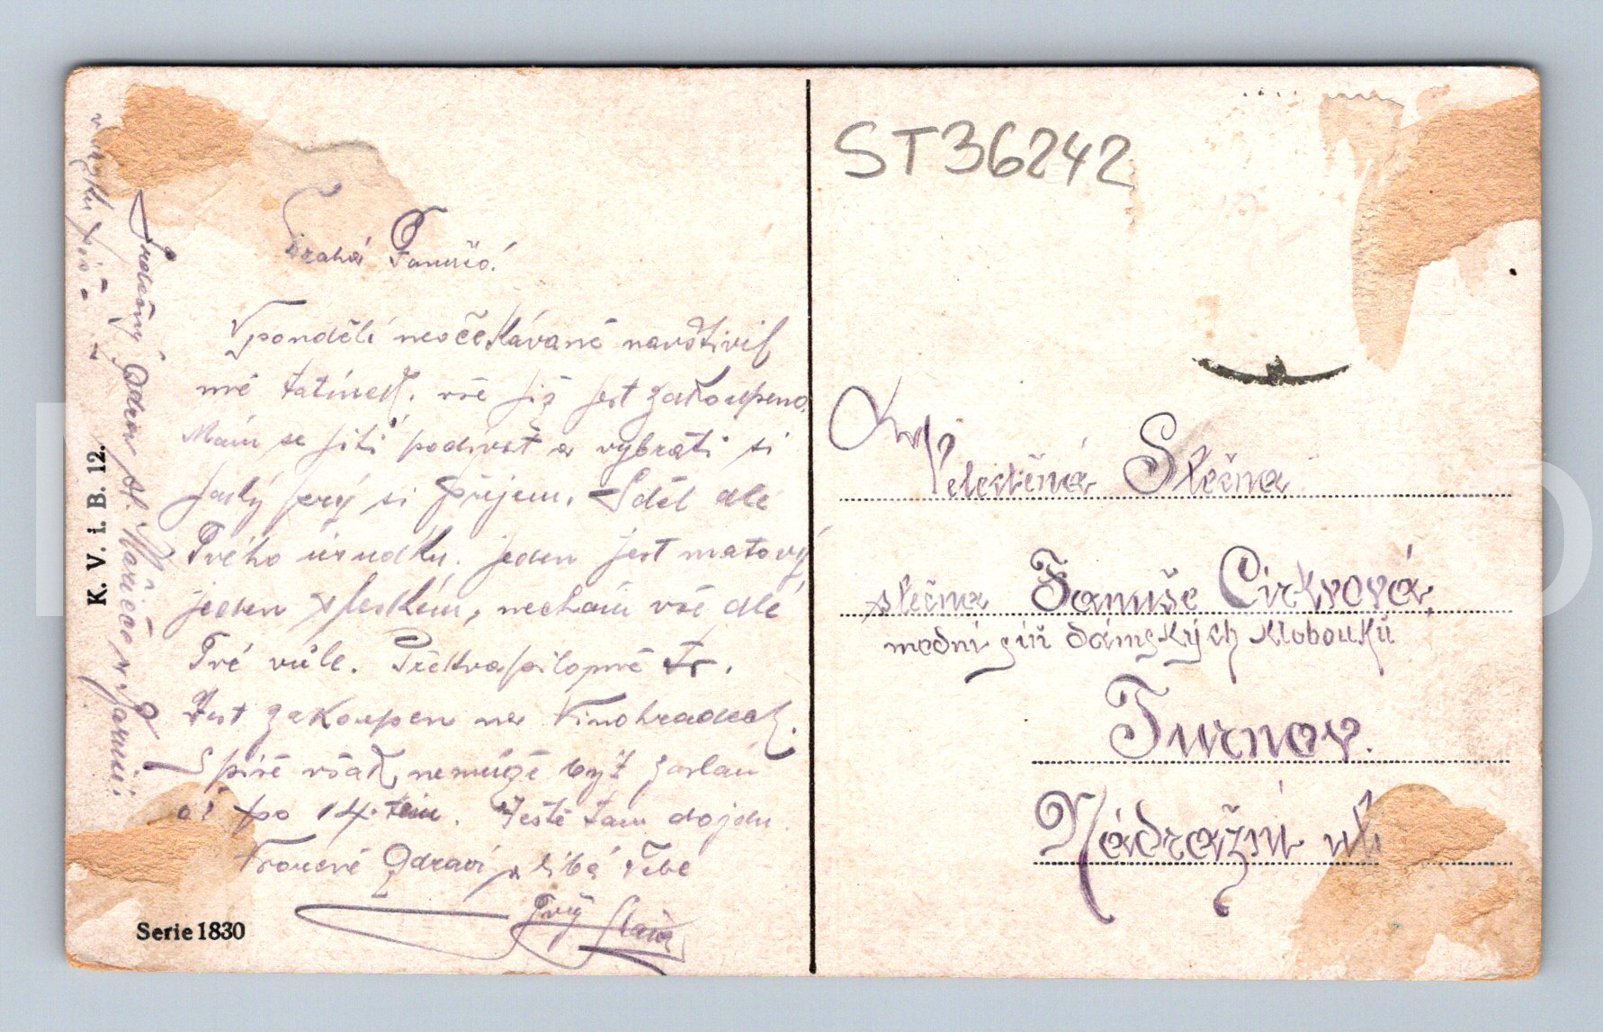 ST36242
Drahá Fanušo!
V pondělí neočekávaně navštívil
mě tatínek. vše již jest zakoupeno.
Mám se jíti podívat a vybrati si
jaký prý si přejem. Sděl dle
Tvého úsudku. jeden jest matový
jeden s leskem, nechám vše dle
Tvé vůle. Překvapilo mě to.
Jest zakoupen na Vinohradech.
Spíše však nemůže být zaslán
až po 14. Ještě tam dojdu.
Vroucně Zdraví a líbá Tebe
Tvůj Sláva
Srdečný Zdar sl. Mařičce
K. V. i. B. 12.
Serie 1830
Velectěná Slečna
slečna Fanuše Cirkvová,
modní síň dámských klobouků
Turnov.
Nádražní ul.